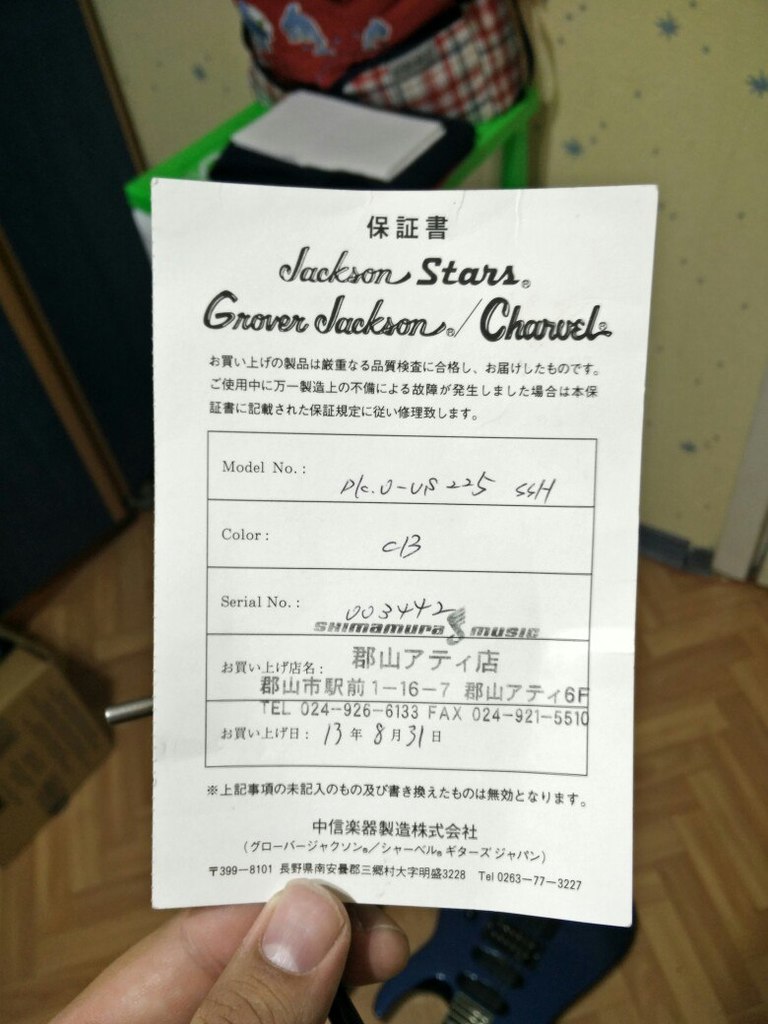 保証書
Jackson Stars®
Grover Jackson®/Charvel®
お買い上げの製品は厳重なる品質検査に合格し、お届けしたものです。
ご使用中に万一製造上の不備による故障が発生しました場合は本保
証書に記載された保証規定に従い修理致します。
Model No.:
225 SSH
Color:
Serial No.: 003442
SHIMAMURA MUSIC
お買い上げ店名: 郡山アティ店
郡山市駅前1-16-7 郡山アティ6F
TEL 024-926-6133 FAX 024-921-5510
お買い上げ日: 13年8月31日
※上記事項の未記入のもの及び書き換えたものは無効となります。
中信楽器製造株式会社
(グローバージャクソン®/シャーベル®ギターズジャパン)
〒399-8101 長野県南安曇郡三郷村大字明盛3228 Tel 0263-77-3227